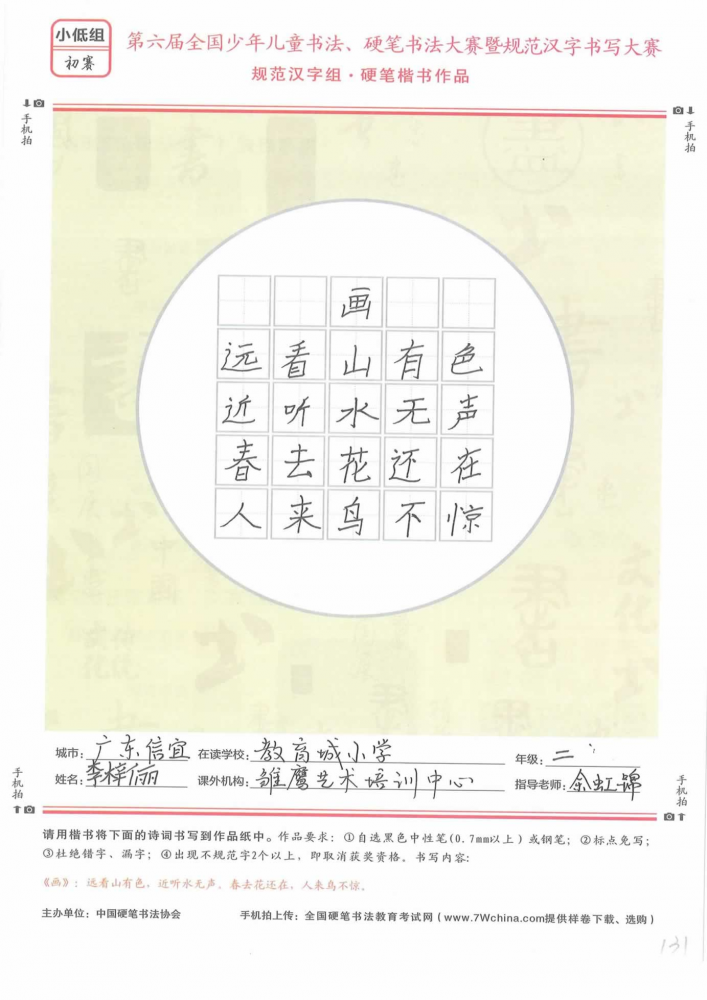 小低组
初赛
第六届全国少年儿童书法、硬笔书法大赛暨规范汉字书写大赛
规范汉字组·硬笔楷书作品
手机拍
手机拍
画
远看山有色
近听水无声
春去花还在
人来鸟不惊
城市：广东信宜 在读学校：教育城小学 年级：二
姓名：李梓俪 课外机构：雏鹰艺术培训中心 指导老师：余虹锦
手机拍
手机拍
请用楷书将下面的诗词书写到作品纸中。作品要求：①自选黑色中性笔(0.7mm以上)或钢笔；②标点免写；
③杜绝错字、漏字；④出现不规范字2个以上，即取消获奖资格。书写内容：
《画》：远看山有色，近听水无声。春去花还在，人来鸟不惊。
主办单位：中国硬笔书法协会 手机拍上传：全国硬笔书法教育考试网（www.7Wchina.com提供样卷下载、选购）
131